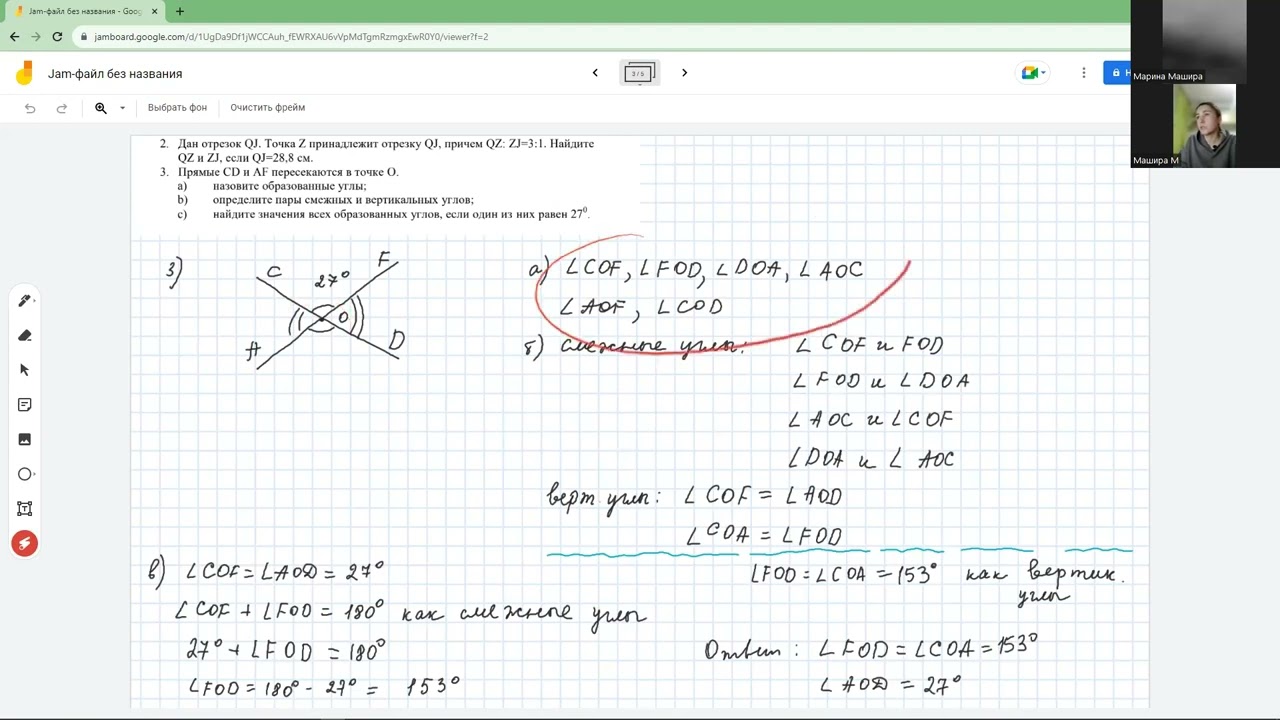 Jam-файл без названия - Goog
jamboard.google.com/d/1UgDa9Df1jWCCAuh_fEWRXAU6vVpMdTgmRzmgxEwR0Y0/viewer?f=2
Jam-файл без названия
3 / 5
Н
Выбрать фон
Очистить фрейм
Марина Машира
Машира М
2. Дан отрезок QJ. Точка Z принадлежит отрезку QJ, причем QZ: ZJ=3:1. Найдите
QZ и ZJ, если QJ=28,8 см.
3. Прямые CD и AF пересекаются в точке О.
a) назовите образованные углы;
b) определите пары смежных и вертикальных углов;
c) найдите значения всех образованных углов, если один из них равен 27⁰.
3)
C
27°
F
O
A
D
а) ∠COF, ∠FOD, ∠DOA, ∠AOC
∠AOF, ∠COD
б) смежные углы: ∠COF и FOD
∠FOD и ∠DOA
∠AOC и ∠COF
∠DOA и ∠AOC
верт углы: ∠COF = ∠AOD
∠COA = ∠FOD
в) ∠COF = ∠AOD = 27°
∠COF + ∠FOD = 180° как смежные углы
27° + ∠FOD = 180°
∠FOD = 180° - 27° = 153°
∠FOD = ∠COA = 153° как вертик.
углы
Ответ: ∠FOD = ∠COA = 153°
∠AOD = 27°